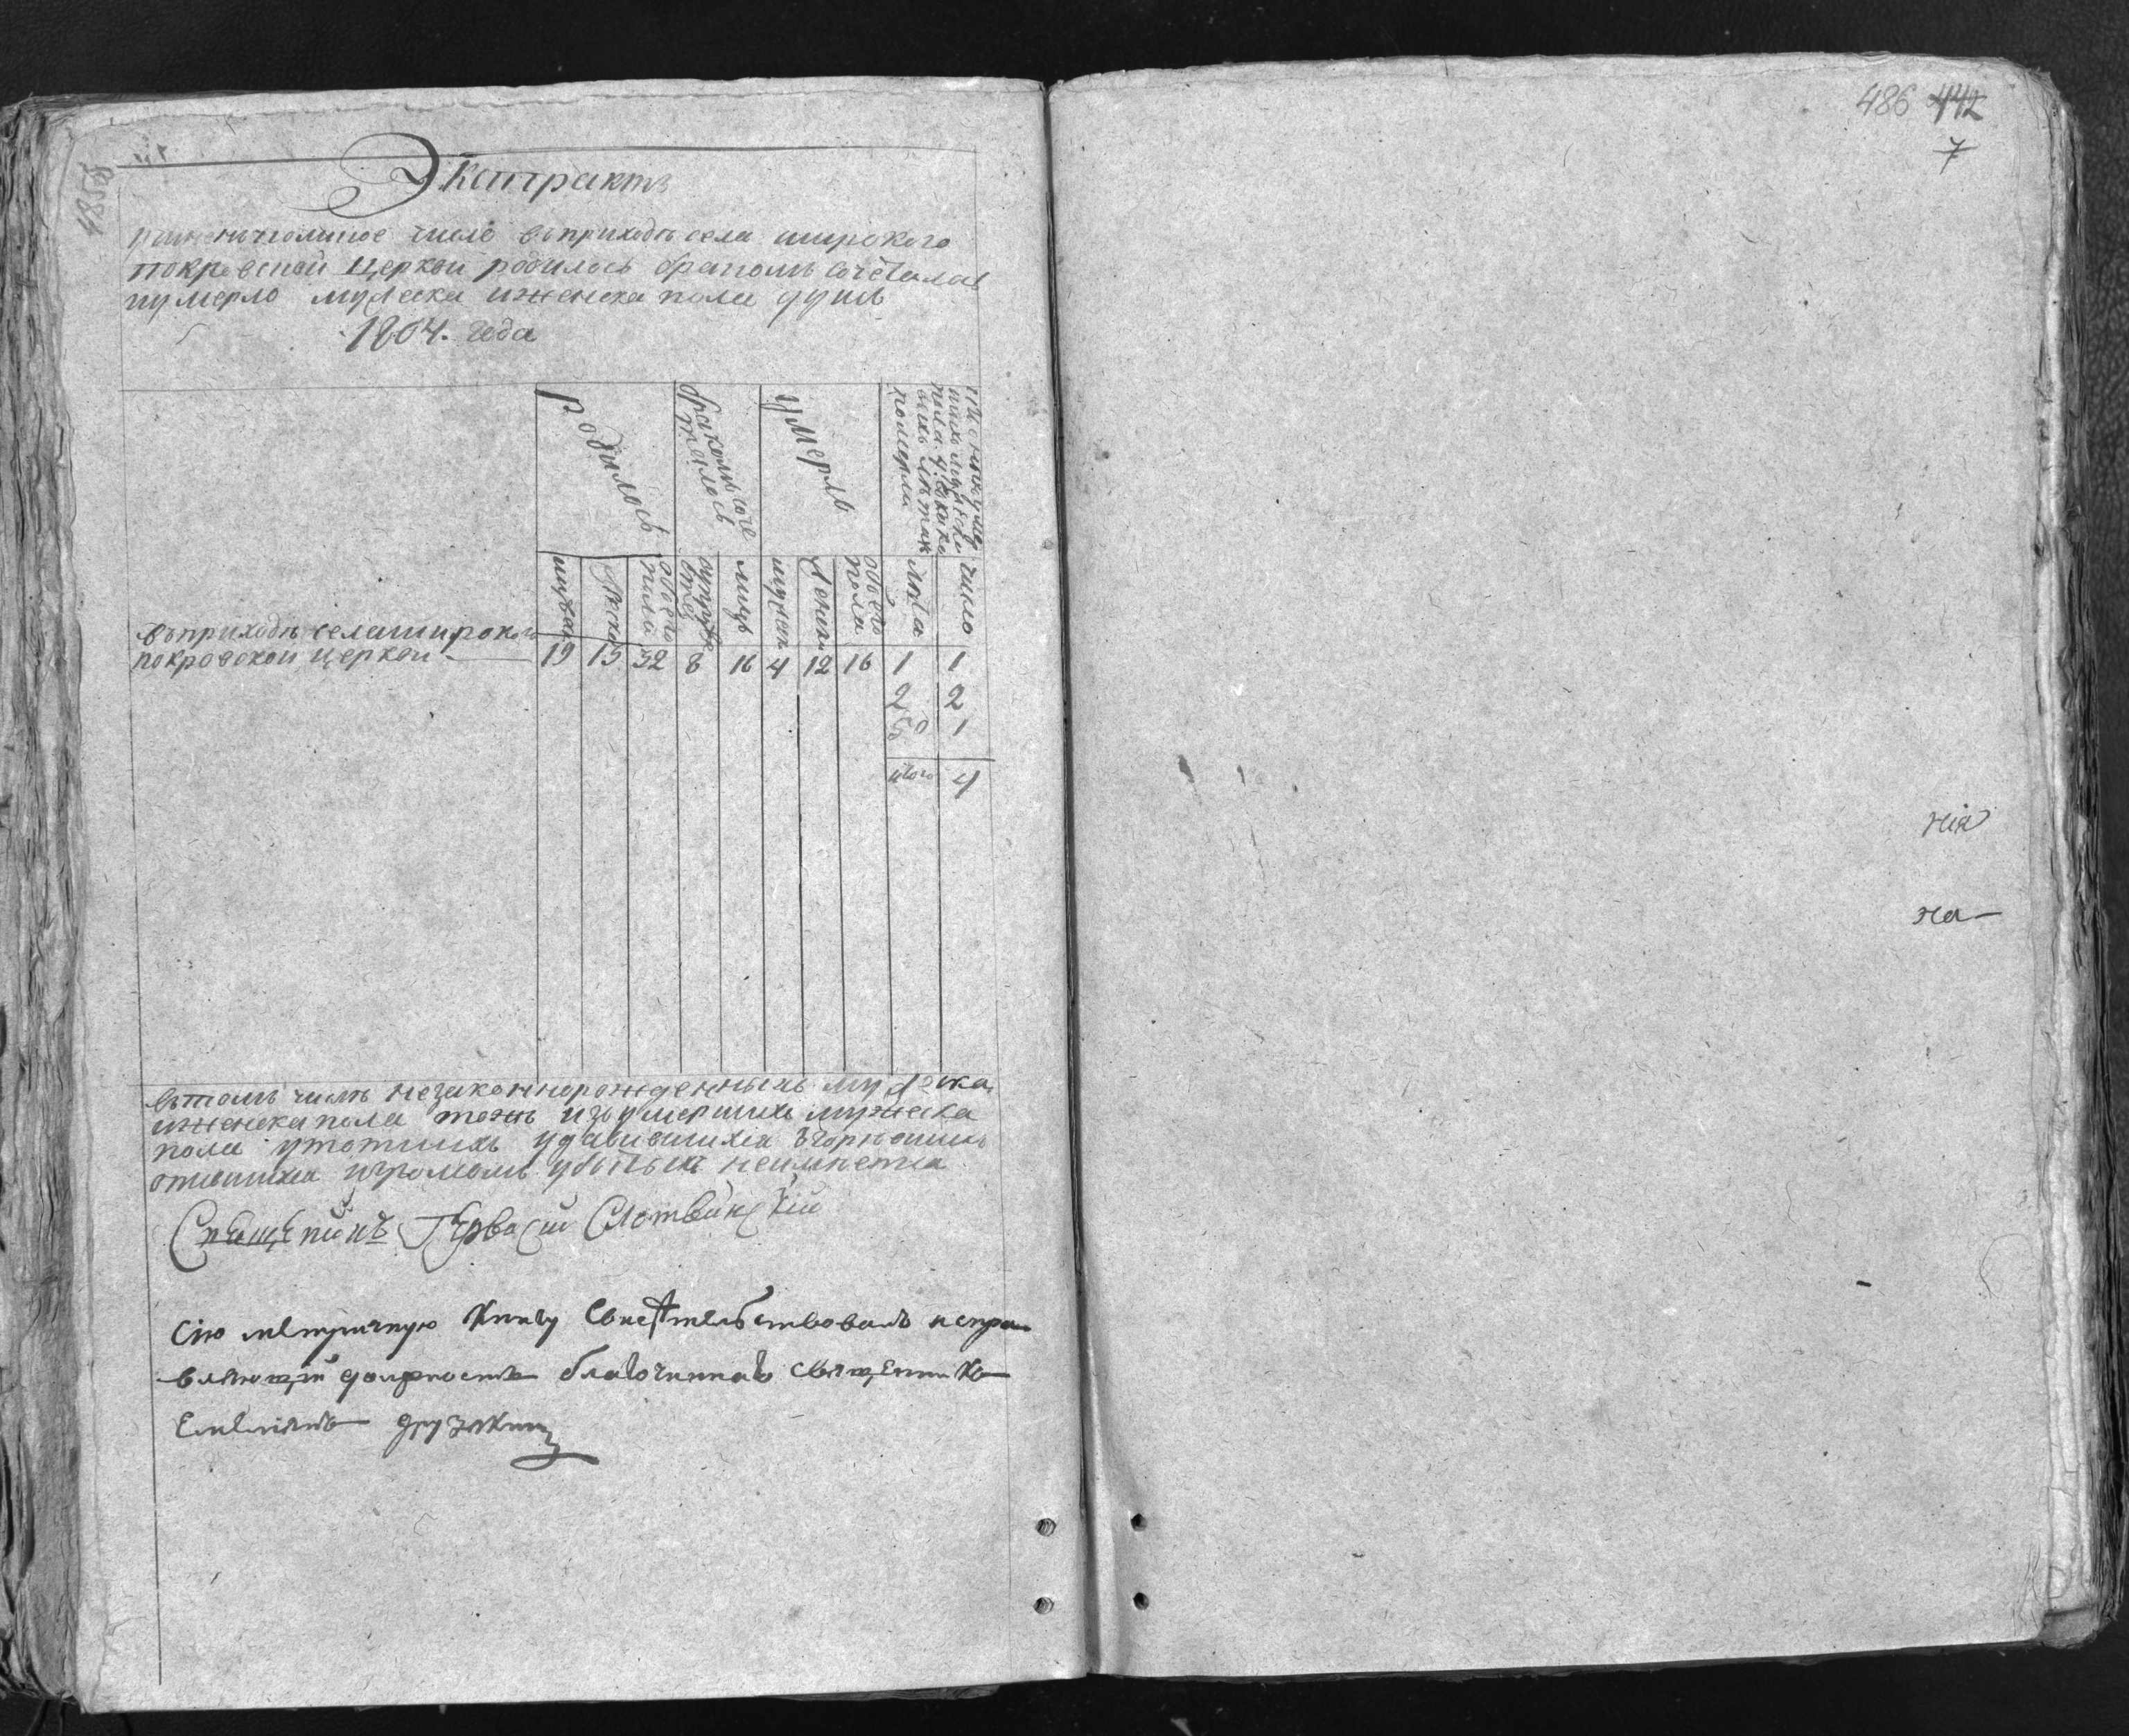 Экстрактъ
число въприходѣ села широкого
покровской церкви родилось бракомъ сочеталась
иумерло мужеска иженска пола душъ
1804. года
Родилось
бракомъ соче
талось
Умерло
мужеска
женска
обоего
пола
лицъ
мужеска
женска
обоего
пола
лѣта
число
въприходѣ селаширокого
покровской церкви
19 13 32 8 16 4 12 16 1 1
2 2
50 1
итого 4
втомъ числѣ незаконнорожденныхъ мужеска
иженска пола тожъ изъумершихъ мужеска
пола утопшихъ удавившихся згорѣвшихъ
опившихся игромомъ убытыхъ неимѣется
Священникъ Гервасій Слотвинскій
Сію метричную книгу Свидѣтельствовалъ испра
вляющій должность благочиннаго Священникъ
Емеліянъ
486 442
7
нія
на